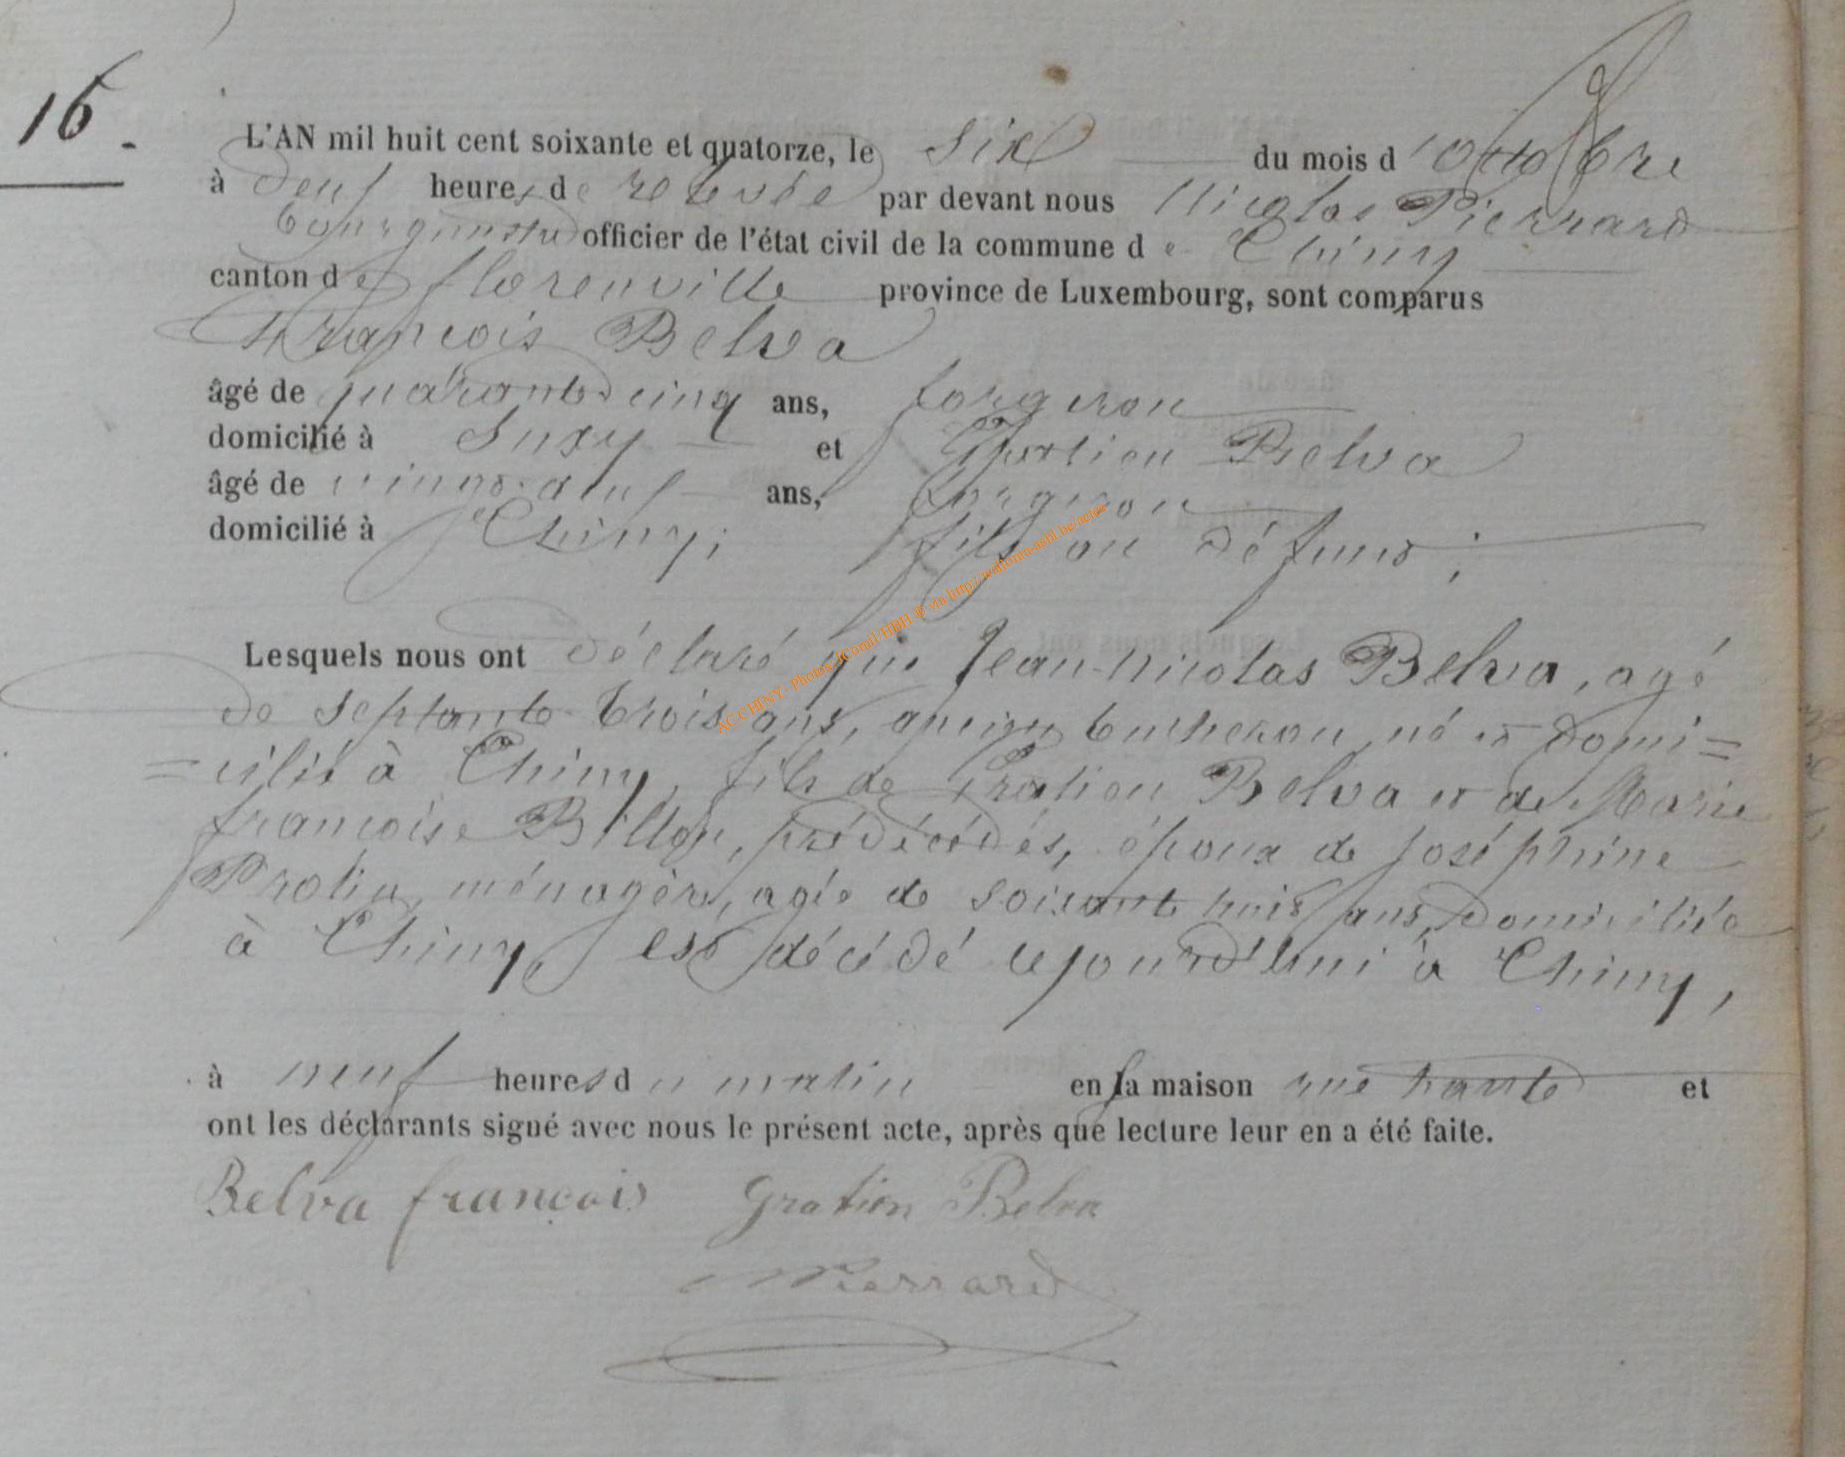 16.
L'AN mil huit cent soixante et quatorze, le six du mois d'octobre
à deux heures de relevée par devant nous Nicolas Pierrard
bourgmestre officier de l'état civil de la commune de Chiny
canton de florenville province de Luxembourg, sont comparus
François Belva
âgé de quarante cinq ans, forgeron
domicilié à Suxy et Gratien Belva
âgé de ans, forgeron
domicilié à Chiny; fils du défunt;
Lesquels nous ont déclaré que Jean-nicolas Belva, agé
de septante-trois ans, ancien bucheron né et domi=
=cilié à Chiny, fils de Gratien Belva et de Marie
françoise Billon, prédécédés, époux de Joséphine
Protin, ménagère, agée de soixante ans, domiciliée
à Chiny, est décédé cejourd'hui à Chiny,
à neuf heures du matin en sa maison rue haute et
ont les déclarants signé avec nous le présent acte, après que lecture leur en a été faite.
Belva françois Gratien Belva
NPierrard